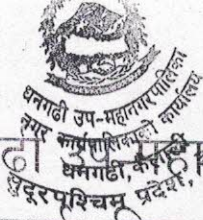 धनगढी उप-महानगरपालिका
नगर कार्यपालिकाको कार्यालय
धनगढी, कैलाली
सुदूरपश्चिम प्रदेश,